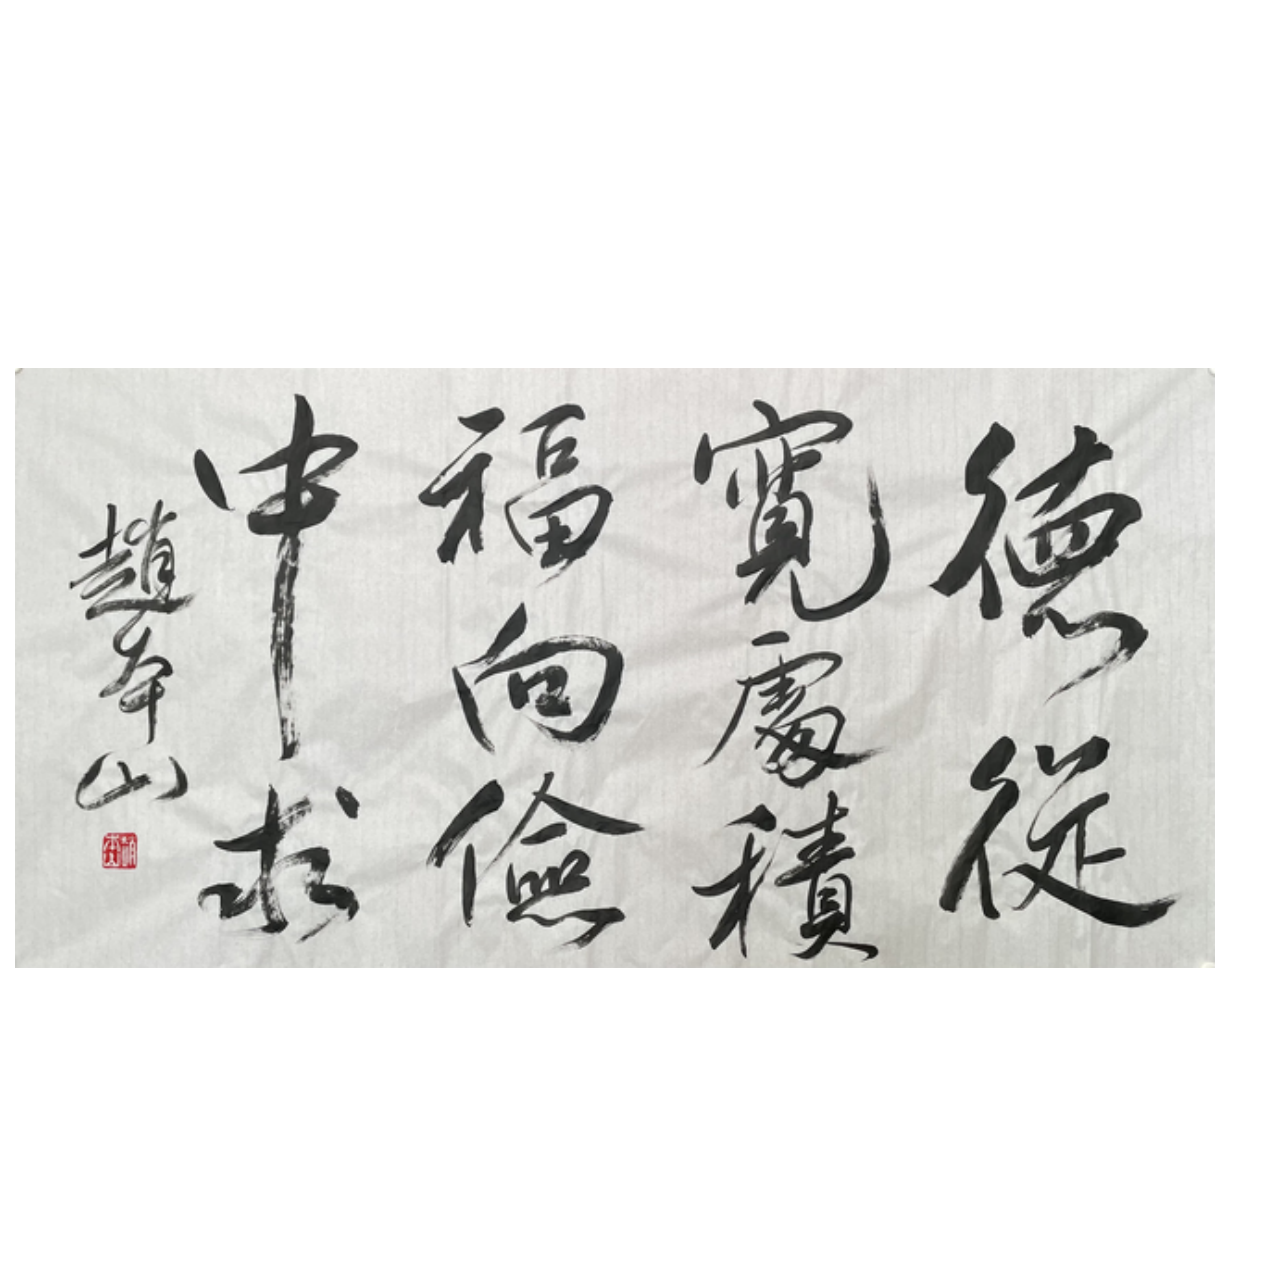 德從
寬處積
福向儉
中求
趙本山